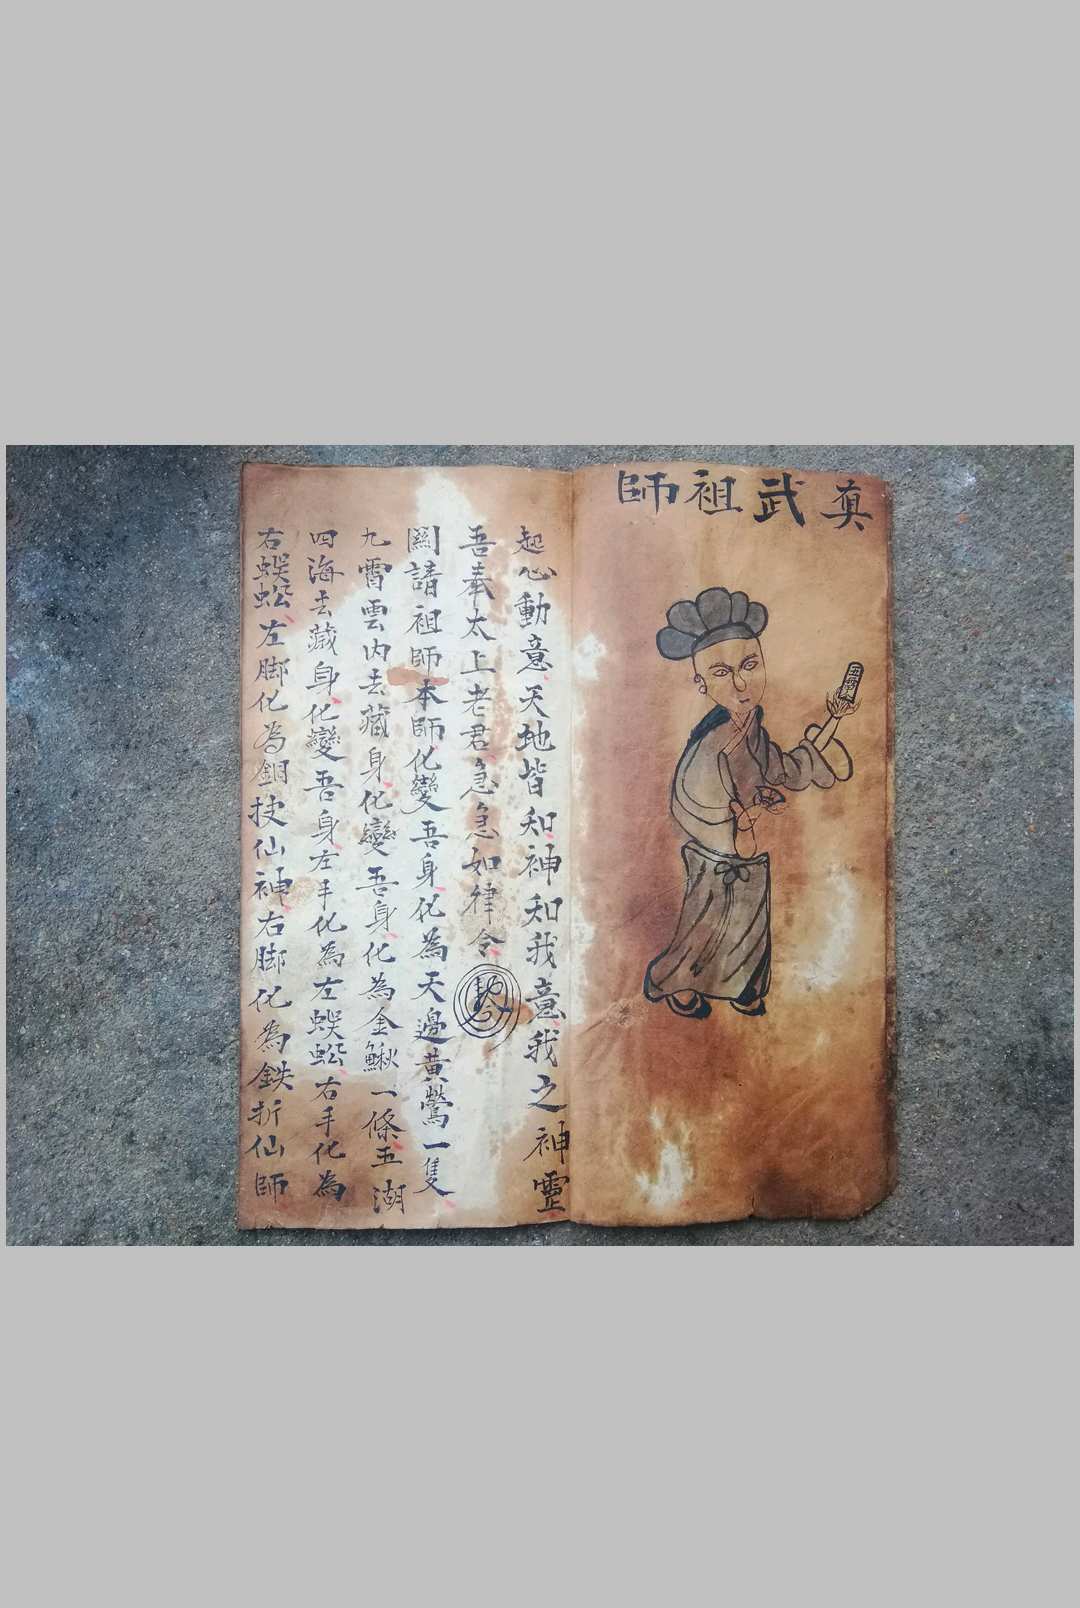 真武祖師
起心動意天地皆知神知我意我之神霊
吾奉太上老君急急如律令
請祖師本師化變吾身化為天邊黃鶯一隻
九霄雲內去藏身化變吾身化為金鰍一條五湖
四海去藏身化變吾身左手化為左蜈蚣右手化為
右蜈蚣左脚化為銅扙仙神右脚化為鉄折仙師